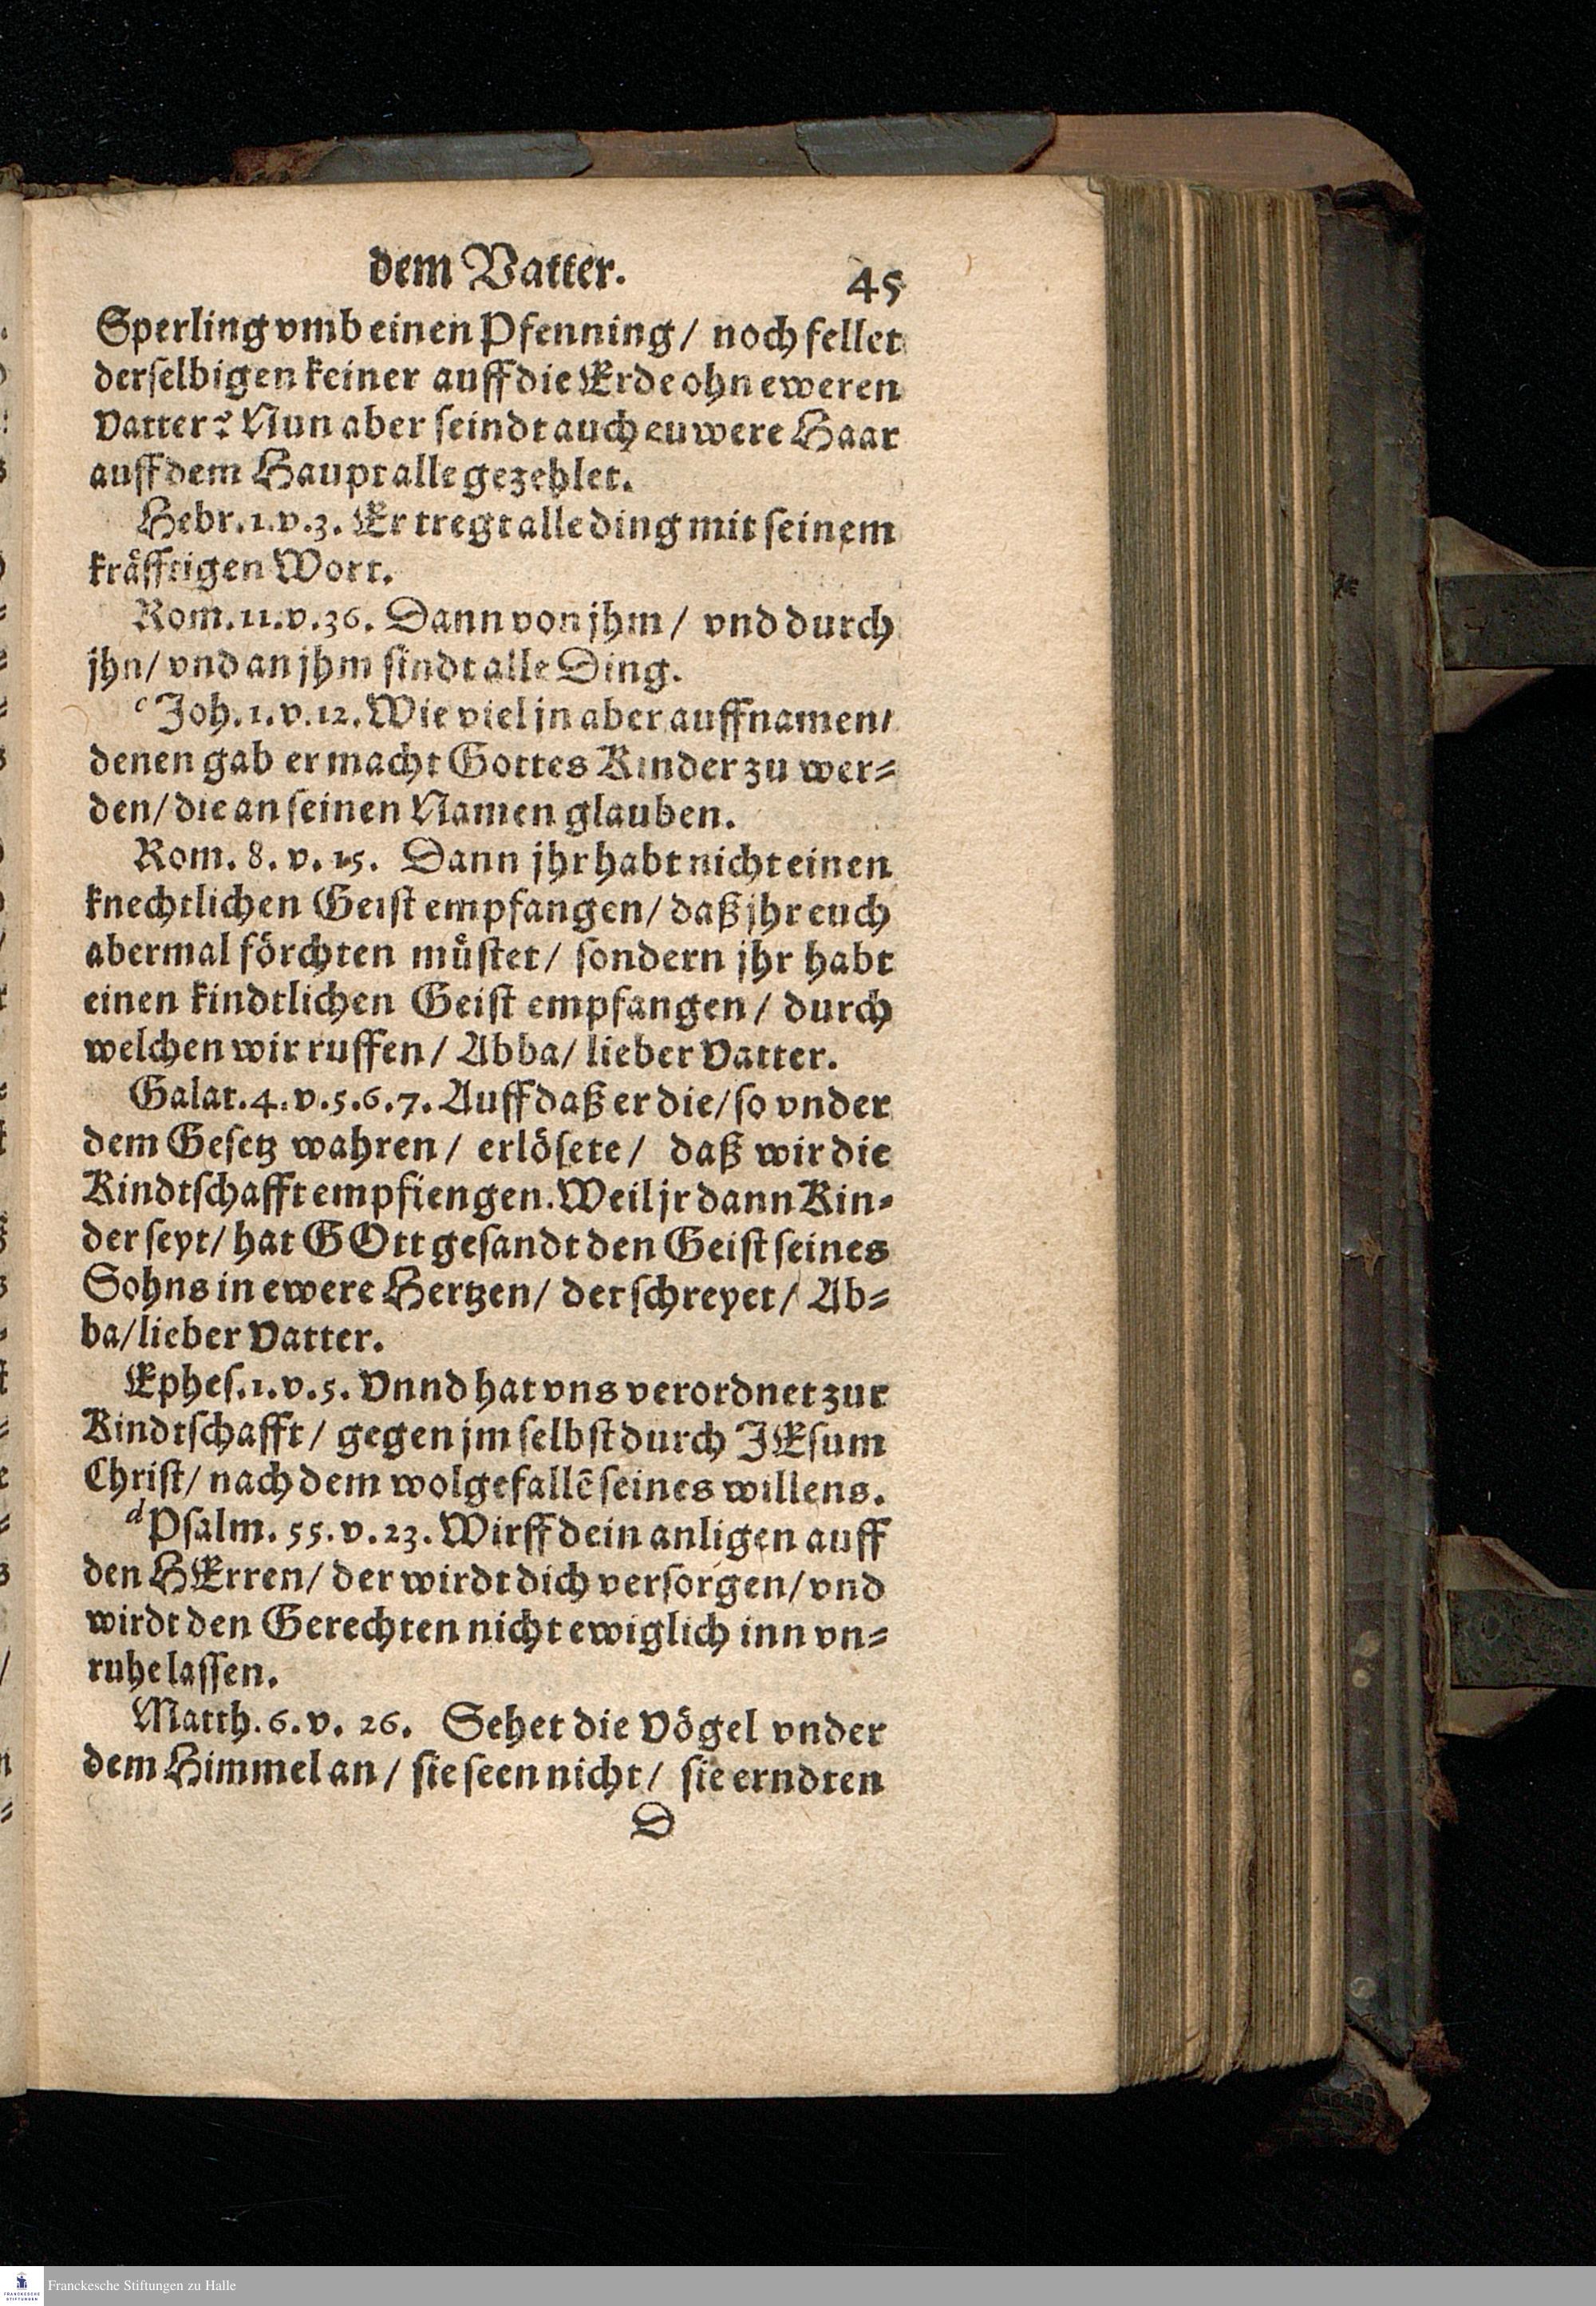 dem Vatter. 45
Sperling vmb einen Pfenning / noch fellet
derſelbigen keiner auff die Erde ohn eweren
Vatter? Nun aber ſeindt auch euwere Haar
auff dem Haupt alle gezehlet.
Hebr. 1. v. 3. Er tregt alle ding mit ſeinem
kraͤfftigen Wort.
Rom. 11. v. 36. Dann von jhm / vnd durch
jhn / vnd an jhm ſindt alle Ding.
c Joh. 1. v. 12. Wie viel jn aber auffnamen /
denen gab er macht Gottes Kinder zu wer⸗
den / die an ſeinen Namen glauben.
Rom. 8. v. 15. Dann jhr habt nicht einen
knechtlichen Geiſt empfangen / daß jhr euch
abermal foͤrchten muͤſtet / ſondern jhr habt
einen kindtlichen Geiſt empfangen / durch
welchen wir ruffen / Abba / lieber Vatter.
Galat. 4. v. 5. 6. 7. Auff daß er die / ſo vnder
dem Geſetz wahren / erloͤſete / daß wir die
Kindtſchafft empfiengen. Weil jr dann Kin⸗
der ſeyt / hat GOtt geſandt den Geiſt ſeines
Sohns in ewere Hertzen / der ſchreyet / Ab⸗
ba / lieber Vatter.
Epheſ. 1. v. 5. Vnnd hat vns verordnet zur
Kindtſchafft / gegen jm ſelbſt durch JEſum
Chriſt / nach dem wolgefallẽ ſeines willens.
d Pſalm. 55. v. 23. Wirff dein anligen auff
den HErren / der wirdt dich verſorgen / vnd
wirdt den Gerechten nicht ewiglich inn vn⸗
ruhe laſſen.
Matth. 6. v. 26. Sehet die Voͤgel vnder
dem Himmel an / ſie ſeen nicht / ſie erndten
D
Franckesche Stiftungen zu Halle